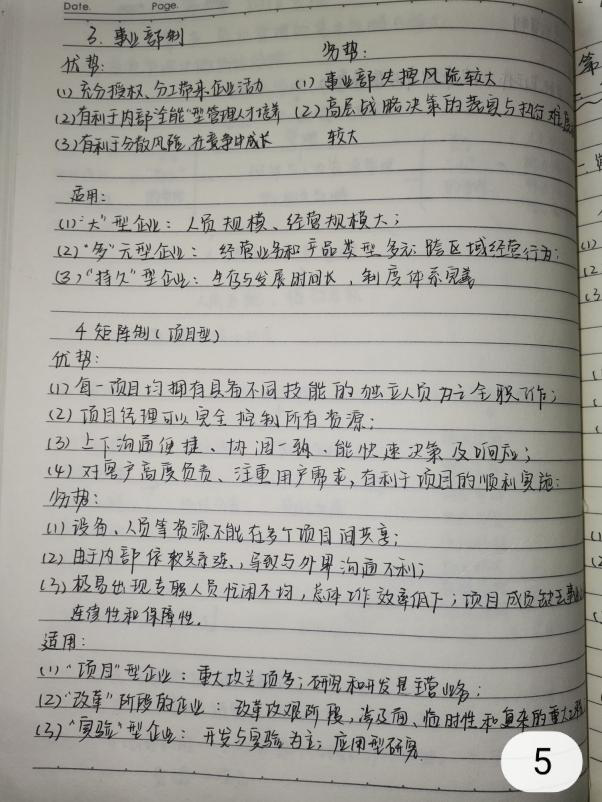 Date. Page.
3. 事业部制
优势: 劣势:
(1) 充分授权、分工带来企业活力 (1) 事业部失控风险较大
(2) 有利于内部"全能"型管理人才培养 (2) 高层战略决策的落实与执行难度
(3) 有利于分散风险,在竞争中成长 较大
适用:
(1) "大"型企业: 人员规模、经营规模大;
(2) "多"元型企业: 经营业务和产品类型多元 跨区域经营行为;
(3) "持久"型企业: 生存与发展时间长,制度体系完善
4 矩阵制 (项目型)
优势:
(1) 每一项目均拥有具备不同技能的独立人员为之全职工作;
(2) 项目经理可以完全控制所有资源;
(3) 上下沟通便捷、协调一致、能快速决策及响应;
(4) 对客户高度负责、注重用户需求,有利于项目的顺利实施:
劣势:
(1) 设备、人员等资源不能在多个项目间共享;
(2) 由于内部依赖关系强,导致与外界沟通不利;
(3) 极易出现专职人员忙闲不均,总体工作效率低下;项目成员缺乏事业
连续性和保障性.
适用:
(1) "项目"型企业: 重大攻关项多;研究和开发是主营业务;
(2) "改革"阶段的企业: 改革攻艰阶段,涉及面、临时性和复杂的重大工程
(3) "实验"型企业: 开发与实验为主;应用型研究.
5